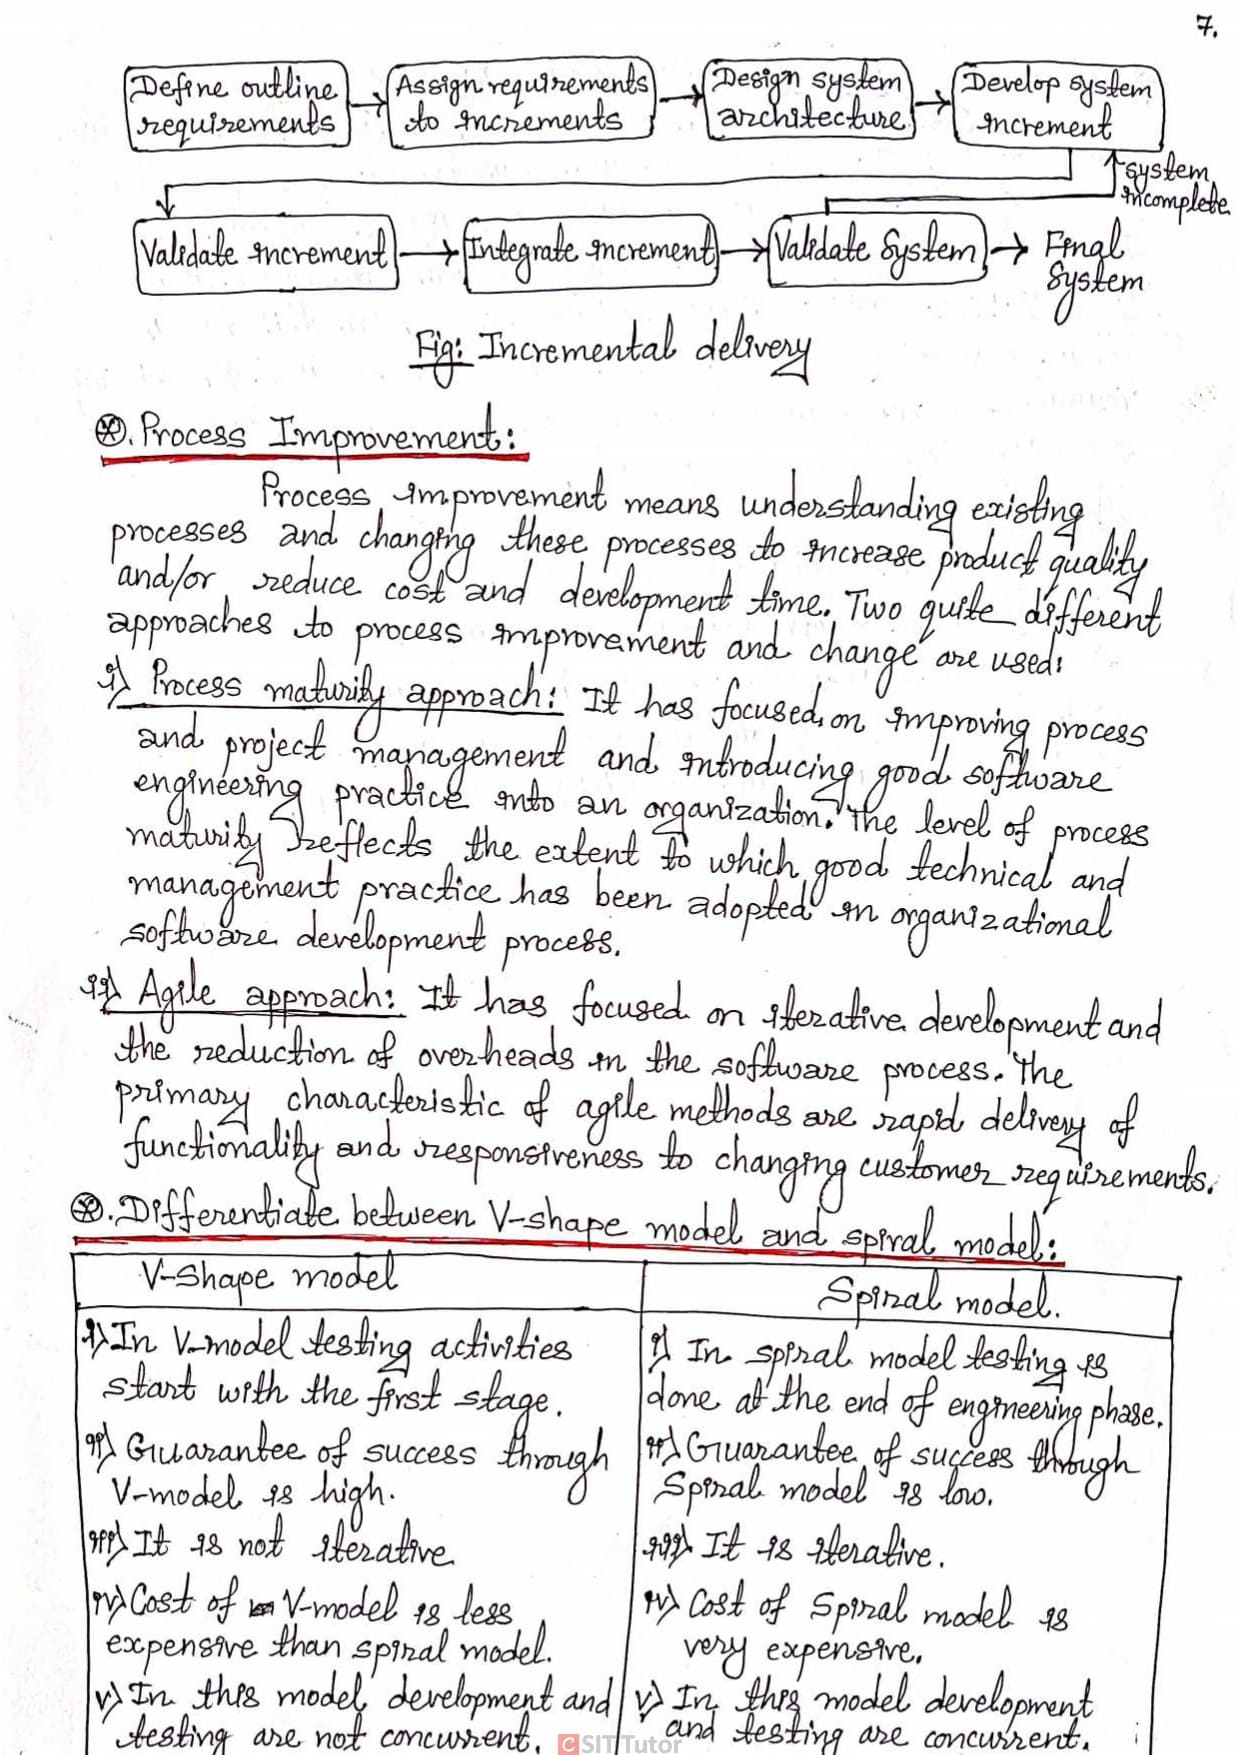 7.
Define outline
requirements
Assign requirements
to increments
Design system
architecture
Develop system
increment
system
incomplete
Validate increment
Integrate increment
Validate System
Final
System
Fig: Incremental delivery
⊛. Process Improvement:
Process improvement means understanding existing
processes and changing these processes to increase product quality
and/or reduce cost and development time. Two quite different
approaches to process improvement and change are used:
i) Process maturity approach: It has focused on improving process
and project management and introducing good software
engineering practice into an organization. The level of process
maturity reflects the extent to which good technical and
management practice has been adopted in organizational
software development process.
ii) Agile approach: It has focused on iterative development and
the reduction of overheads in the software process. The
primary characteristic of agile methods are rapid delivery of
functionality and responsiveness to changing customer requirements.
⊛. Differentiate between V-shape model and spiral model:
V-Shape model
Spiral model.
i) In V-model testing activities
start with the first stage.
i) In spiral model testing is
done at the end of engineering phase.
ii) Guarantee of success through
V-model is high.
ii) Guarantee of success through
Spiral model is low.
iii) It is not iterative
iii) It is iterative.
iv) Cost of V-model is less
expensive than spiral model.
iv) Cost of Spiral model is
very expensive.
v) In this model development and
testing are not concurrent.
v) In this model development
and testing are concurrent.
CSIT Tutor